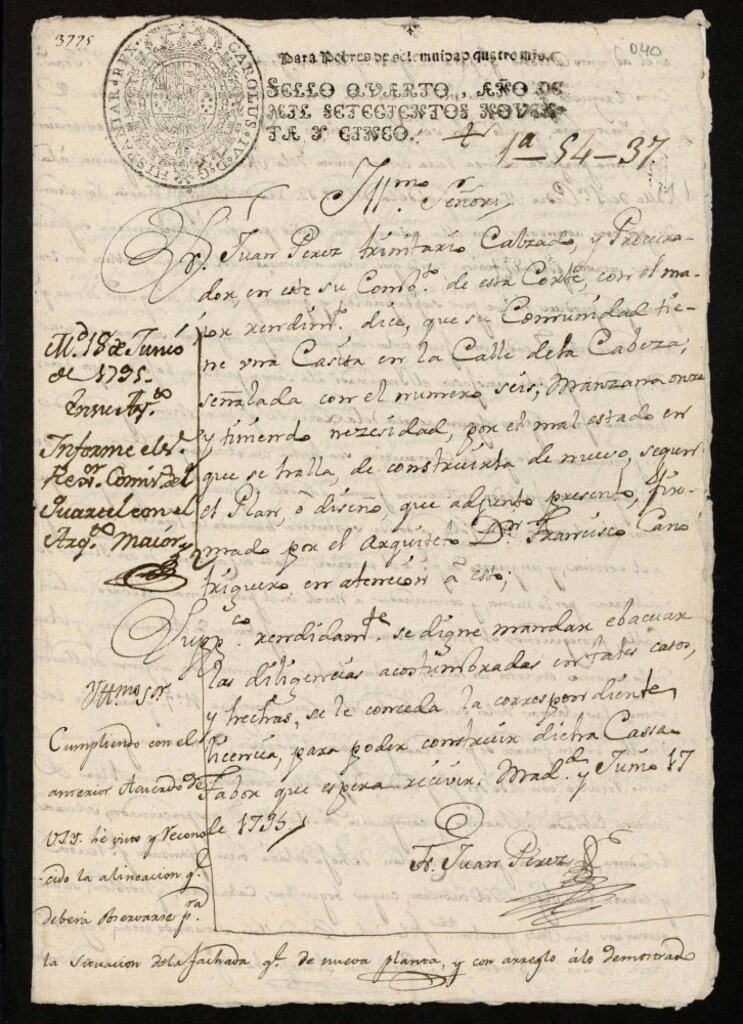 3775
040
CAROLUS IV D. G. HISPANIAR. REX
Para Pobres de solemnidad quatro mrs.
SELLO QVARTO, AÑO DE
MIL SETECIENTOS NOVEN-
TA Y CINCO.
1ª-54-37.
Yllmo. Señor
Fr. Juan Perez trinitario Calzado, y Procura-
dor, en este su Combto. de esta Corte, con el ma-
yor rendimto. dice, que su Comunidad tie-
ne vna Casita en la Calle dela Cabeza,
señalada con el numero seis, Manzana onze
y tiniendo nezesidad, por el mal estado en
que se halla, de construirla de nuevo, segun
el Plan, ò diseño, que adjunto presento, fir-
mado por el Arquiteto Dn. Francisco Cano
triguero, en atencion à esto;
Suppco. rendidamte. se digne mandar ebacuar
las diligencias acostumbradas en tales casos,
y hechas, se le conceda la correspondiente
licencia, para poder construir dicha Cassa.
Fabor que espera recivir. Madd. y Junio 17
de 1795,
Fr. Juan Perez
Md. 18 de Junio
de 1795.
En su Ayto.
Informe el sr.
Rexor. Comiso. del
Quartel con el
Arqto. Maior
Yllmo sor
Cumpliendo con el
anterior Acuerdo de
V.S.Y. he visto y Recono
-cido la alineacion qe.
deberà observarse pa.
la situacion dela fachada qe. de nueva planta, y con arreglo àlo demostrado